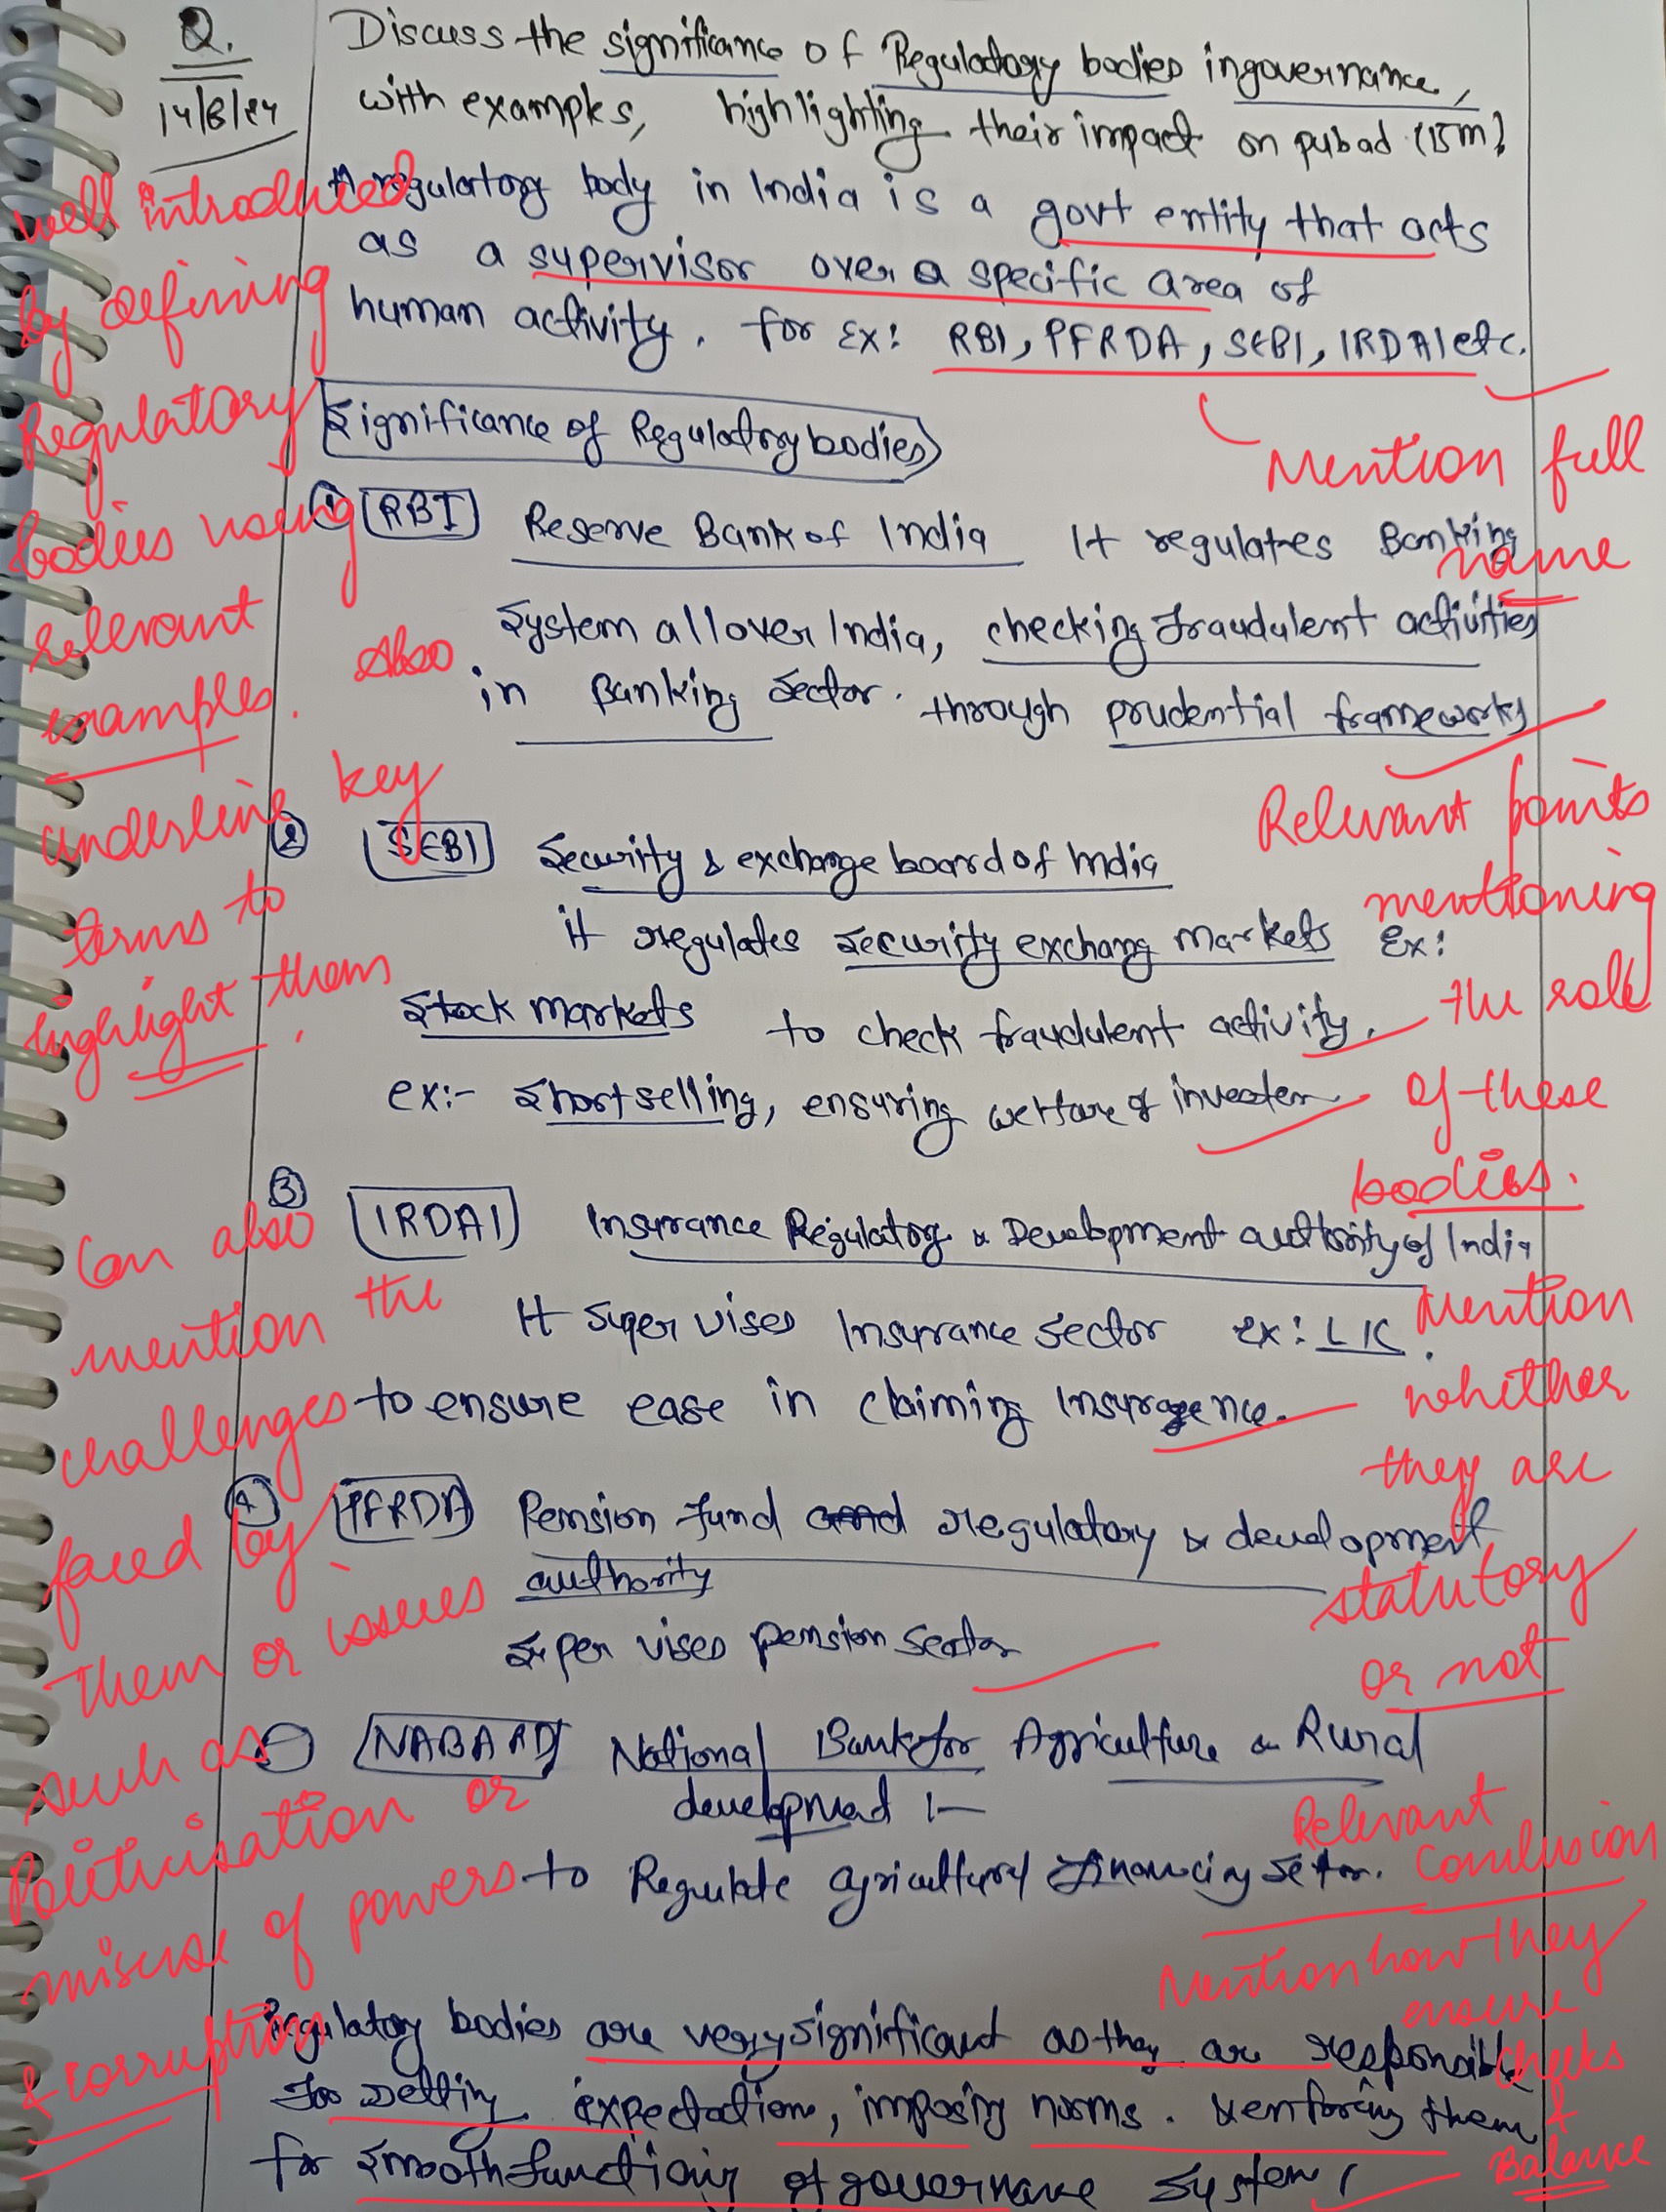 Q.
14/8/24
Discuss the significance of Regulatory bodies in governance,
with examples, highlighting their impact on pubad (15m)
A regulatory body in India is a govt entity that acts
as a supervisor over a specific area of
human activity. for Ex: RBI, PFRDA, SEBI, IRDAI etc.
well introduced
by defining
Regulatory
bodies using
relevant
examples. Also
underline key
terms to
highlight them.
Mention full
name
Significance of Regulatory bodies
① RBI Reserve Bank of India It regulates Banking
system all over India, checking fraudulent activities
in Banking Sector. through prudential frameworks
② SEBI Security & exchange board of India
it regulates security exchang markets Ex:
Stock markets to check fraudulent activity.
ex:- Short selling, ensuring welfare of invester
Relevant points
mentioning
the role
of these
bodies.
③ IRDAI Insurance Regulatory & Development authority of India
It Supervises Insurance Sector ex: LIC.
to ensure ease in claiming Insurgence.
Mention
whither
they are
statutory
or not
④ PFRDA Pension fund and regulatory & development
authority
Supervises pension Sector
Can also
mention the
challenges
faced by
them or issues
such as
Politicisation or
misuse of powers
& corruption
NABARD National Bank for Agriculture & Rural
development :-
to Regulate agricultural financing Setor.
Relevant
Conclusion
Mention how they
ensure
checks
&
Balance
Regulatory bodies are very significant as they are responsible
for setting expectation, imposing norms. & enforcing them
for smooth functioning of governance system.